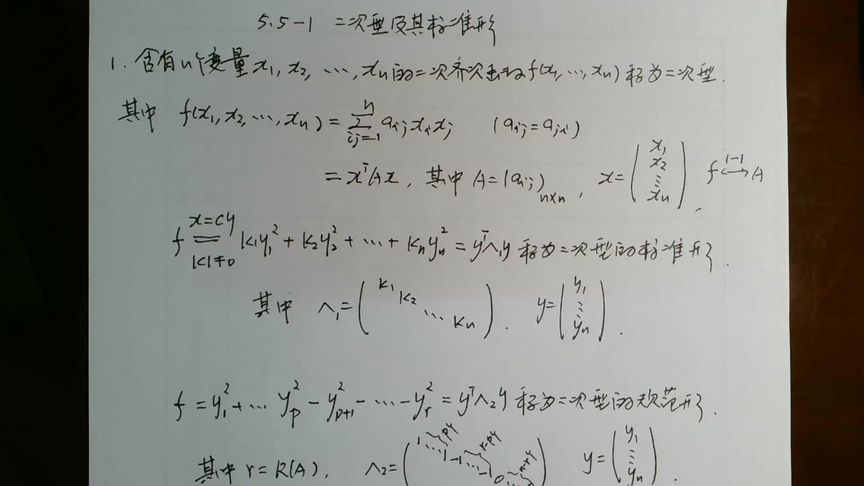 5.5-1 二次型及其标准形
1. 含有n个变量 x₁, x₂, ⋯, xₙ的二次齐次函数f(x₁, ⋯, xₙ) 称为二次型.
其中 f(x₁, x₂, ⋯, xₙ) = Σⁿᵢⱼ₌₁ aᵢⱼ xᵢ xⱼ (aᵢⱼ = aⱼᵢ)
= xᵀAx, 其中 A = (aᵢⱼ)ₙₓₙ, x = (x₁ x₂ ⋮ xₙ), f ←1-1→ A
f ==(x=Cy, |C|≠0)== k₁y₁² + k₂y₂² + ⋯ + kₙyₙ² = yᵀΛ₁y 称为二次型的标准形.
其中 Λ₁ = (k₁ k₂ ⋯ kₙ). y = (y₁ ⋮ yₙ).
f = y₁² + ⋯ yₚ² - yₚ₊₁² - ⋯ - yᵣ² = yᵀΛ₂y 称为二次型的规范形.
其中 r = R(A), Λ₂ = (1 ⋯ 1 -1 ⋯ -1 0 ⋯) y = (y₁ ⋮ yₙ).